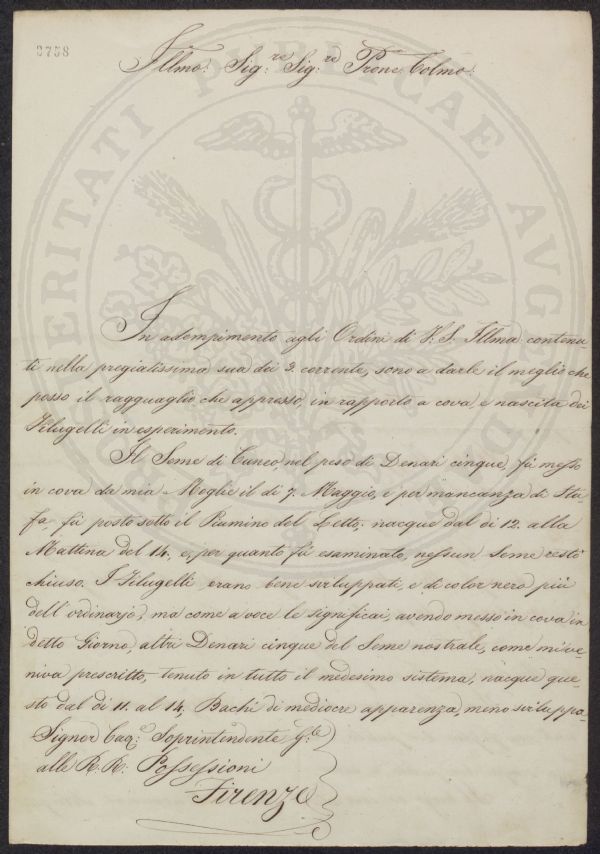 3758
Illmo: Sig:re Sig:re Prone Colmo:
In adempimento agli Ordini di V: S. Illma contenu-
ti nella pregiatissima sua dei 2 corrente, sono a darle il meglio che
posso il ragguaglio che appresso, in rapporto a cova, e nascita dei
Filugelli in esperimento.
Il Seme di Cuneo, nel peso di Denari cinque, fù messo
in cova da mia Moglie il dì 7. Maggio, e per mancanza di Stu-
fa fù posto sotto il Piumino del Letto; nacque dal dì 12. alla
Mattina del 14, e, per quanto fù esaminato, nessun Seme restò
chiuso. I Filugelli erano bene sviluppati, e di color nero più
dell'ordinario, ma come a voce le significai, avendo messo in cova in
detto Giorno, altri Denari cinque del Seme nostrale, come mi ve-
niva prescritto, tenuto in tutto il medesimo sistema, nacque que-
sto dal dì 11. al 14, Bachi di mediocre apparenza, meno sviluppa-
Signor Soprintendente G:le
alle R: R: Possessioni
Firenze
PROSPERITATI PUBLICAE AUGENDAE